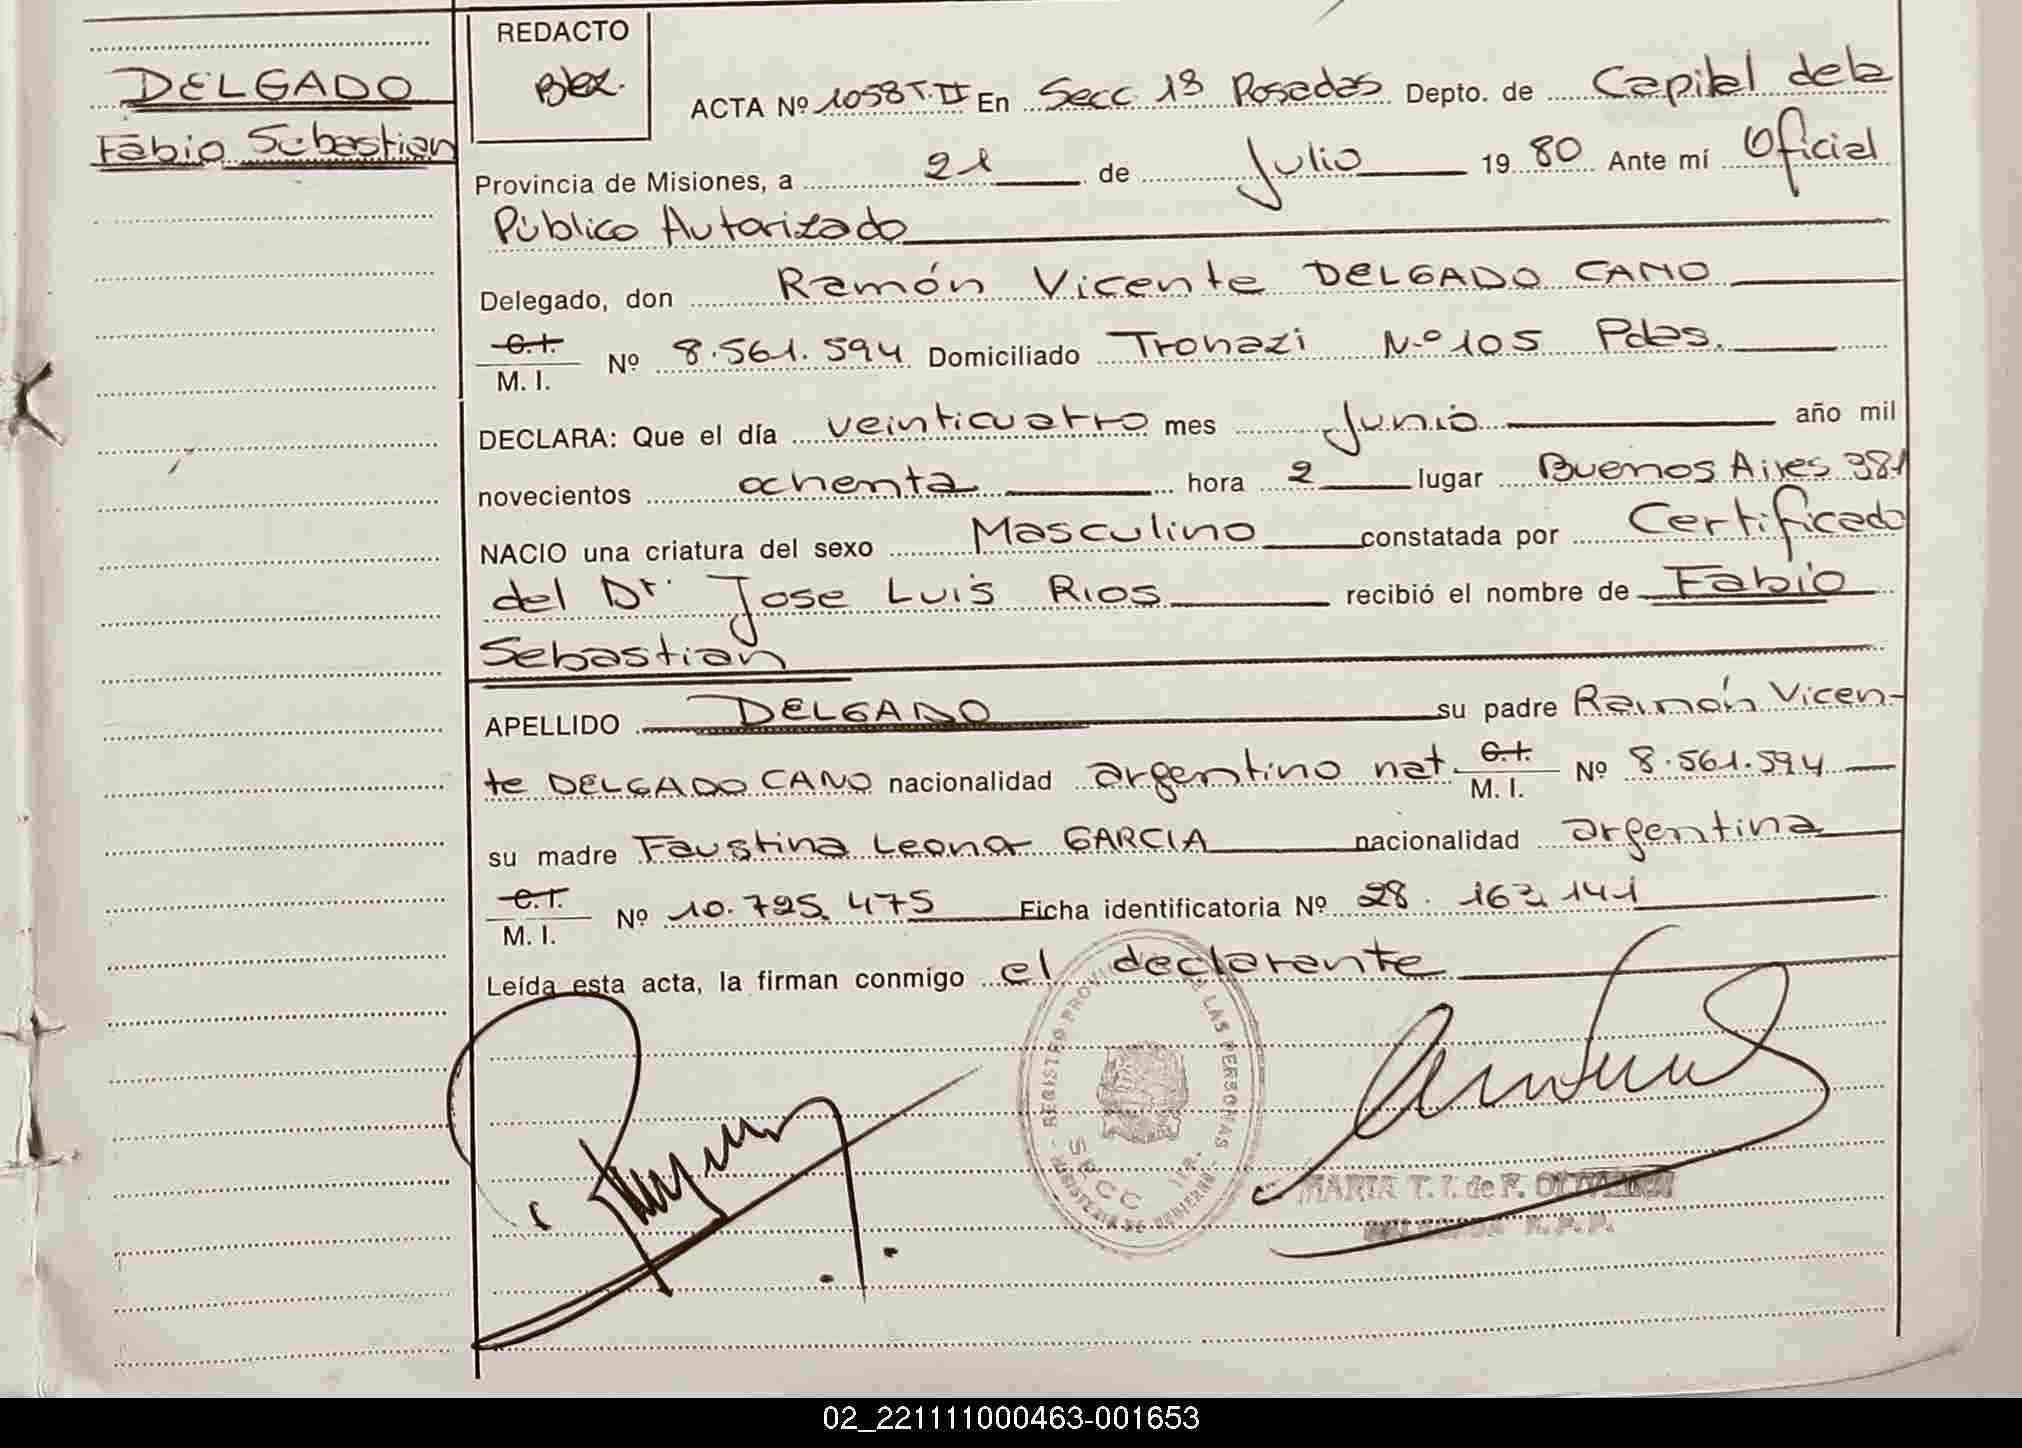 DELGADO
Fabio Sebastian
REDACTO
ACTA Nº 1058 T.II En Secc. 1ª Posadas Depto. de Capital de la
Provincia de Misiones, a 21 de Julio 1980 Ante mí Oficial
Público Autorizado
Delegado, don Ramón Vicente DELGADO CANO
C.I. M. I. Nº 8.561.594 Domiciliado N.º 105 Pdas.
DECLARA: Que el día veinticuatro mes Junio año mil
novecientos ochenta hora 2 lugar Buenos Aires 381
NACIO una criatura del sexo Masculino constatada por Certificado
del Dr. Jose Luis Rios recibió el nombre de Fabio
Sebastian
APELLIDO DELGADO su padre Ramón Vicen-
te DELGADO CANO nacionalidad argentino nat. C.I. M. I. Nº 8.561.594
su madre Faustina Leonor GARCIA nacionalidad argentina
C.I. M. I. Nº 10.795.475 Ficha identificatoria Nº 28.163.141
Leída esta acta, la firman conmigo el declarante
REGISTRO PROVINCIAL DE LAS PERSONAS
SECC. 1RA.
MINISTERIO DE GOBIERNO
MARIA T. I. de F.
02_221111000463-001653